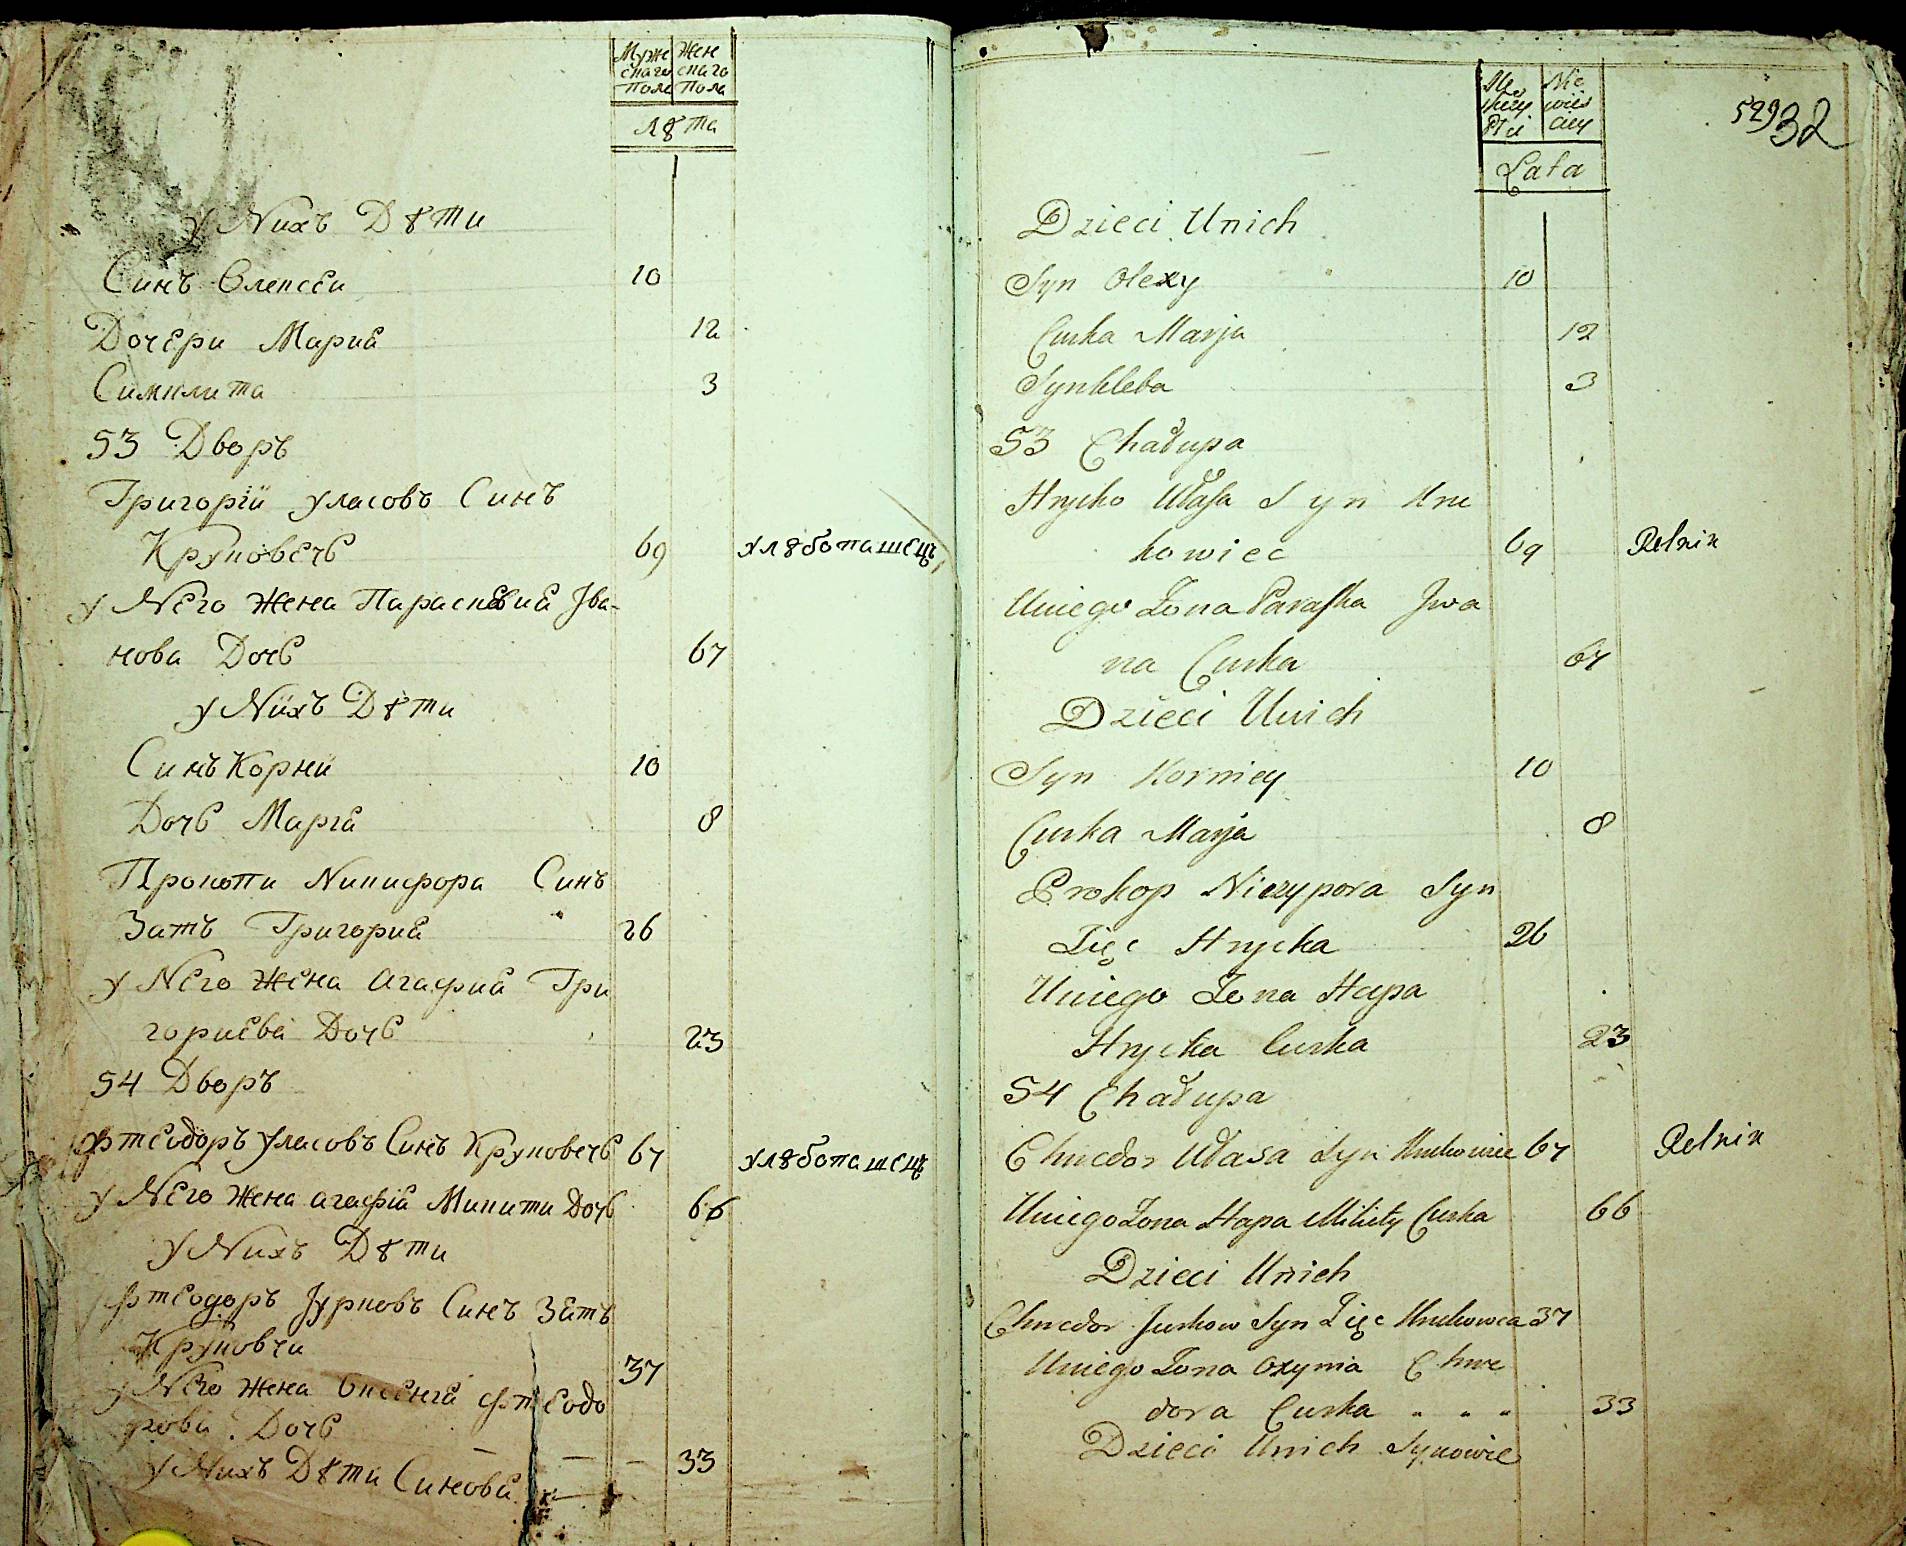 Муже Жен
скаго скаго
Пола Пола
Лѣта
у Нихъ Дѣти
Синъ Олексѣи 10
Дочери Мариа 12
Симклита 3
53 Дворъ
Григорїи Уласовъ Синъ
Круковечь 69 Хлѣбопашецъ
у Него Жена Параскевиа Ива-
нова Дочь 67
у Нихъ Дѣти
Синъ Корни 10
Дочь Маргa 8
Прокопи Никифора Синъ
Зать Григориа 26
у Него Жена Агафиа Гри
гориева Дочь 23
54 Дворъ
Фтеодоръ Уласовъ Синъ Круковечь 67 Хлѣбопашецъ
у Него Жена Агафїа Микити Дочь 66
у Нихъ Дѣти
Фтеодоръ Юрковъ Синъ Зать
Круковча 37
у Него Жена Оксенїа Фтеодо
рова Дочь
у Нихъ Дѣти Синова 33
52932
Mę Nie
skiey wies
Płci ciey
Lata
Dzieci Unich
Syn Olexy 10
Curka Marja 12
Synkleta 3
53 Chałupa
Hrycko Ułasa Syn Kru
kowiec 69 Rolnik
Uniego Żona Paraska Iwa
na Curka 67
Dzieci Unich
Syn Korniey 10
Curka Marja 8
Prokop Niczypora Syn
Zięc Hrycka 26
Uniego Żona Hapa
Hrycka Curka 23
54 Chałupa
Chwedor Ułasa Syn Krukowiec 67 Rolnik
Uniego Żona Hapa Mikity Curka 66
Dzieci Unich
Chwedor Jurkow Syn Zięc Krukowca 37
Uniego Żona Oxynia Chwe
dora Curka 33
Dzieci Unich Synowie